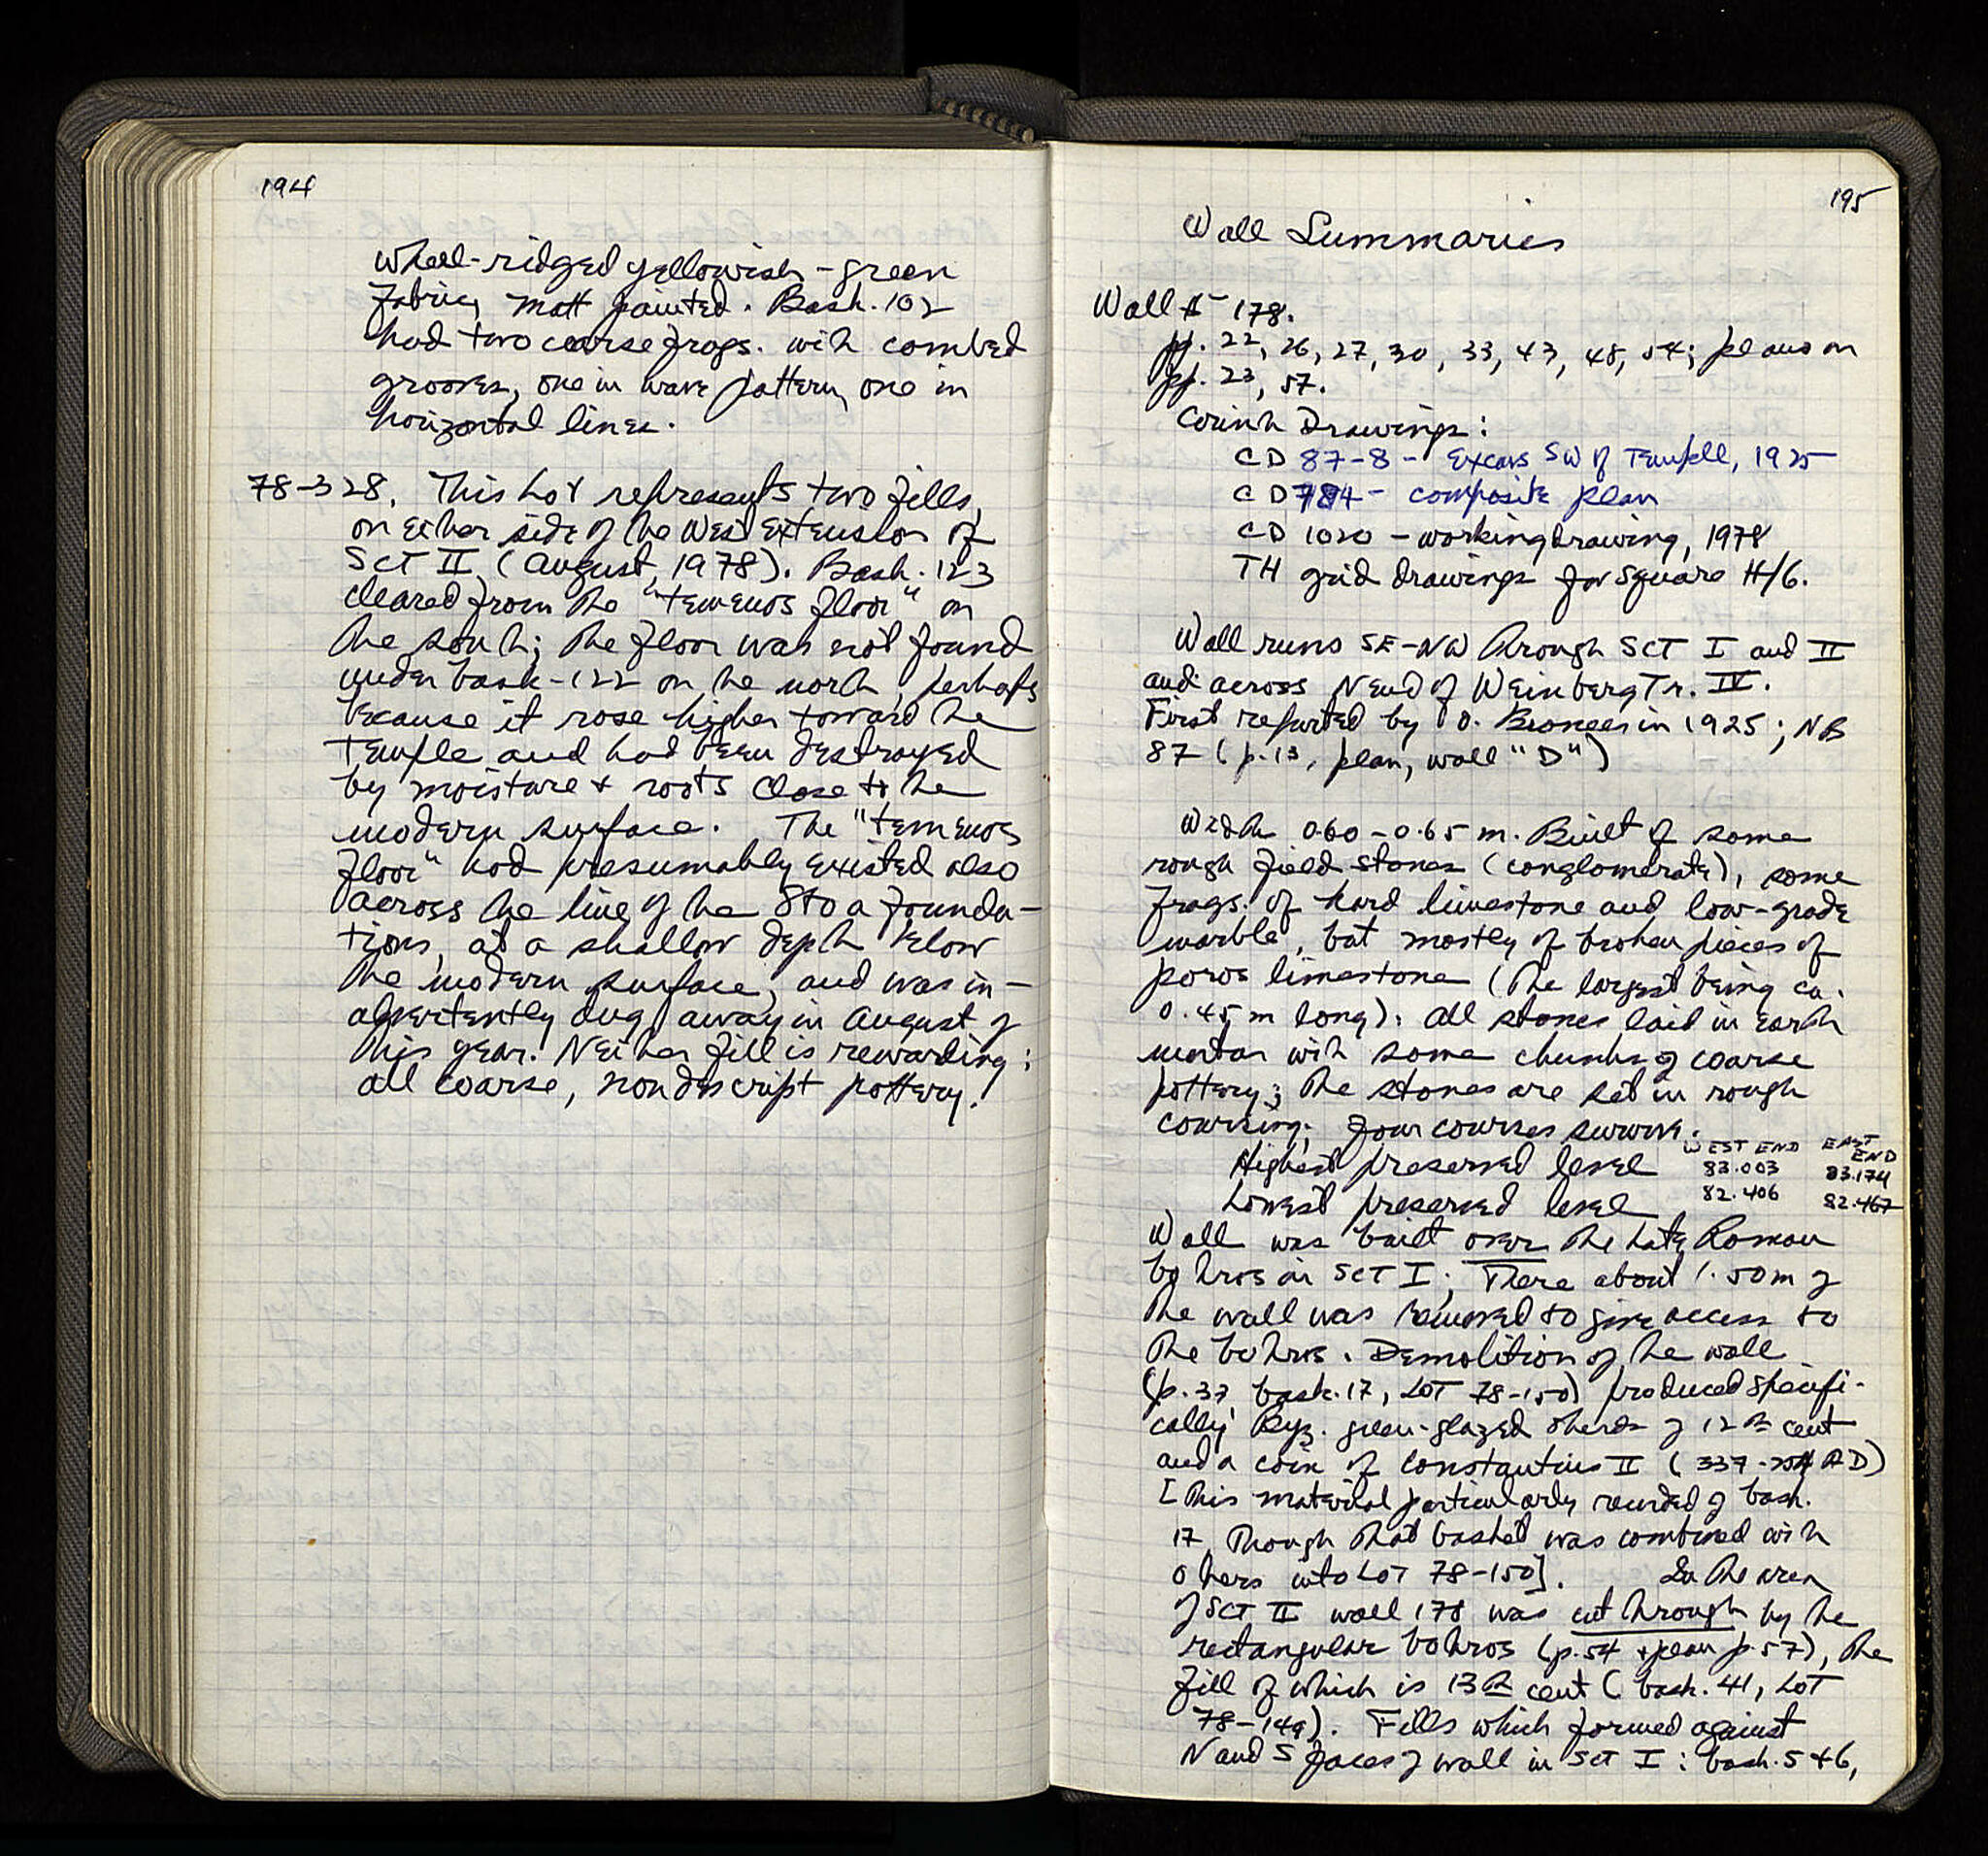 194
wheel-ridged yellowish-green
fabric, matt painted. Bask. 102
had two coarse frags. with combed
grooves, one in wave pattern, one in
horizontal lines.
78-328. This Lot represents two fills,
on either side of the West Extension of
SCT II (August, 1978). Bask. 123
cleared from the "temenos floor" on
the south; the floor was not found
under bask-122 on the north, perhaps
because it rose higher toward the
temple and had been destroyed
by moisture + roots close to the
modern surface. The "temenos
floor" had presumably existed also
across the line of the Stoa founda-
tions, at a shallow depth below
the modern surface, and was in-
advertently dug away in August of
this year. Neither fill is rewarding:
all coarse, nondescript pottery.
195
Wall Summaries
Wall # 178.
pp. 22, 26, 27, 30, 33, 43, 48, 54; plans on
pp. 23, 57.
Corinth Drawings:
CD 87-8 - Excavs SW of Temple, 1925
CD - composite plan
CD 1020 - working drawing, 1978
TH grid drawings for square H/6.
Wall runs SE-NW through SCT I and II
and across N end of Weinberg Tr. IV.
First reported by O. Broneer in 1925; NB
87 (p. 13, plan, wall "D")
Width 0.60-0.65 m. Built of some
rough field stones (conglomerate), some
frags. of hard limestone and low-grade
marble, but mostly of broken pieces of
poros limestone (the largest being ca.
0.45 m long). All stones laid in earth
mortar with some chunks of coarse
pottery; the stones are set in rough
coursing; four courses survive.
WEST END EAST END
Highest preserved level 83.003 83.174
Lowest preserved level 82.406 82.467
Wall was built over the Late Roman
bothros in SCT I; There about 1.50 m of
the wall was removed to give access to
the bothros. Demolition of the wall
(p. 37, bask. 17, LOT 78-150) produced specifi-
cally Byz. green-glazed sherds of 12th cent
and a coin of Constantius II (337- AD)
[This material particularly recorded of bask.
17, though that basket was combined with
others into Lot 78-150]. In the area
of SCT II wall 178 was cut through by the
rectangular bothros (p. 54 + plan p. 57), the
fill of which is 13th cent (bask. 41, LOT
78-149). Fills which formed against
N and S faces of wall in SCT I: bask. 5+6,